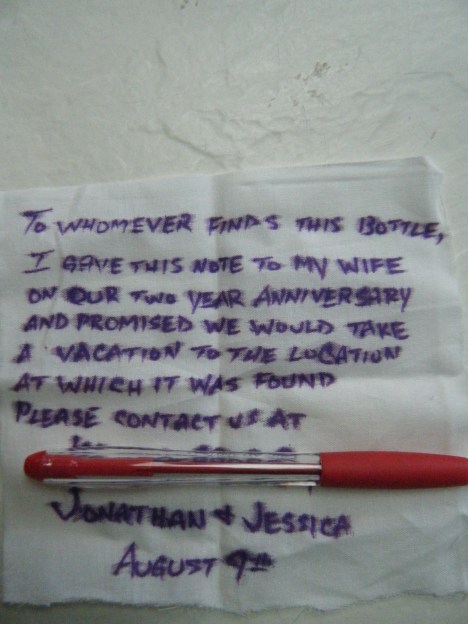 To WHOMEVER FINDS THIS BOTTLE,
I GAVE THIS NOTE TO MY WIFE
ON OUR TWO YEAR ANNIVERSARY
AND PROMISED WE WOULD TAKE
A VACATION TO THE LOCATION
AT WHICH IT WAS FOUND
PLEASE CONTACT US AT
JONATHAN & JESSICA
AUGUST 9TH